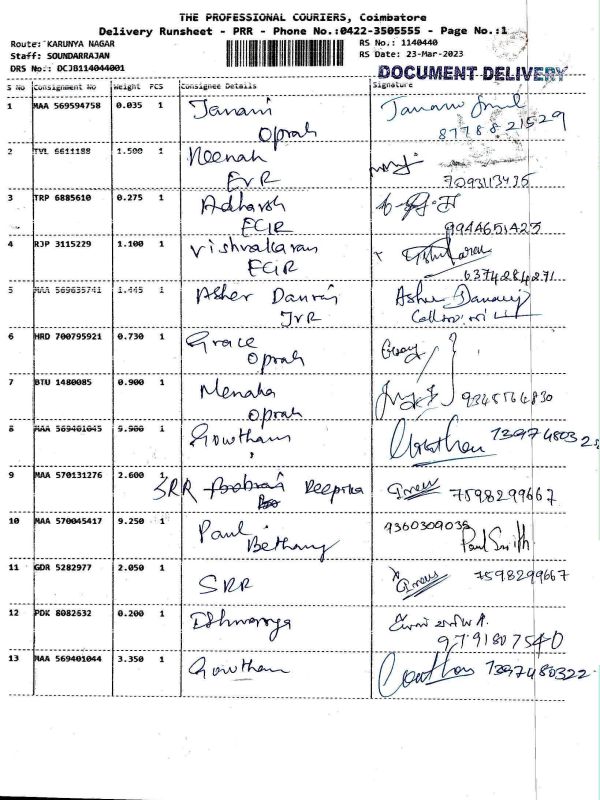 THE PROFESSIONAL COURIERS, Coimbatore
Delivery Runsheet - PRR - Phone No.:0422-3505555 - Page No.:1
Route: KARUNYA NAGAR
RS No.: 1140440
Staff: SOUNDARRAJAN
RS Date: 23-Mar-2023
DRS No.: DCJB114044001
DOCUMENT DELIVERY
S No Consignment No Weight PCS Consignee Details Signature
1 MAA 569594758 0.035 1 Janani
Oprah
8778821529
2 TVL 6611188 1.500 1 Neenah
EVR
7093113425
3 TRP 6885610 0.275 1 Adharsh
ECIR
9944651423
4 RJP 3115229 1.100 1 Vishvakaran
ECIR
6374284271
5 MAA 569635741 1.445 1 Asher Danraj
JVR
6 HRD 700795921 0.730 1 Grace
Oprah
7 BTU 1480085 0.900 1 Menaha 9345764830
Oprah
8 MAA 569401045 9.900 1 Gowtham
9 MAA 570131276 2.600 1 SRR Deepika 7598299667
10 MAA 570045417 9.250 1 Paul 9360309035
Bethany Paul Smith
11 GDR 5282977 2.050 1 SRR 7598299667
12 PDK 8082632 0.200 1
9791807540
13 MAA 569401044 3.350 1 Gowtham 7397480322